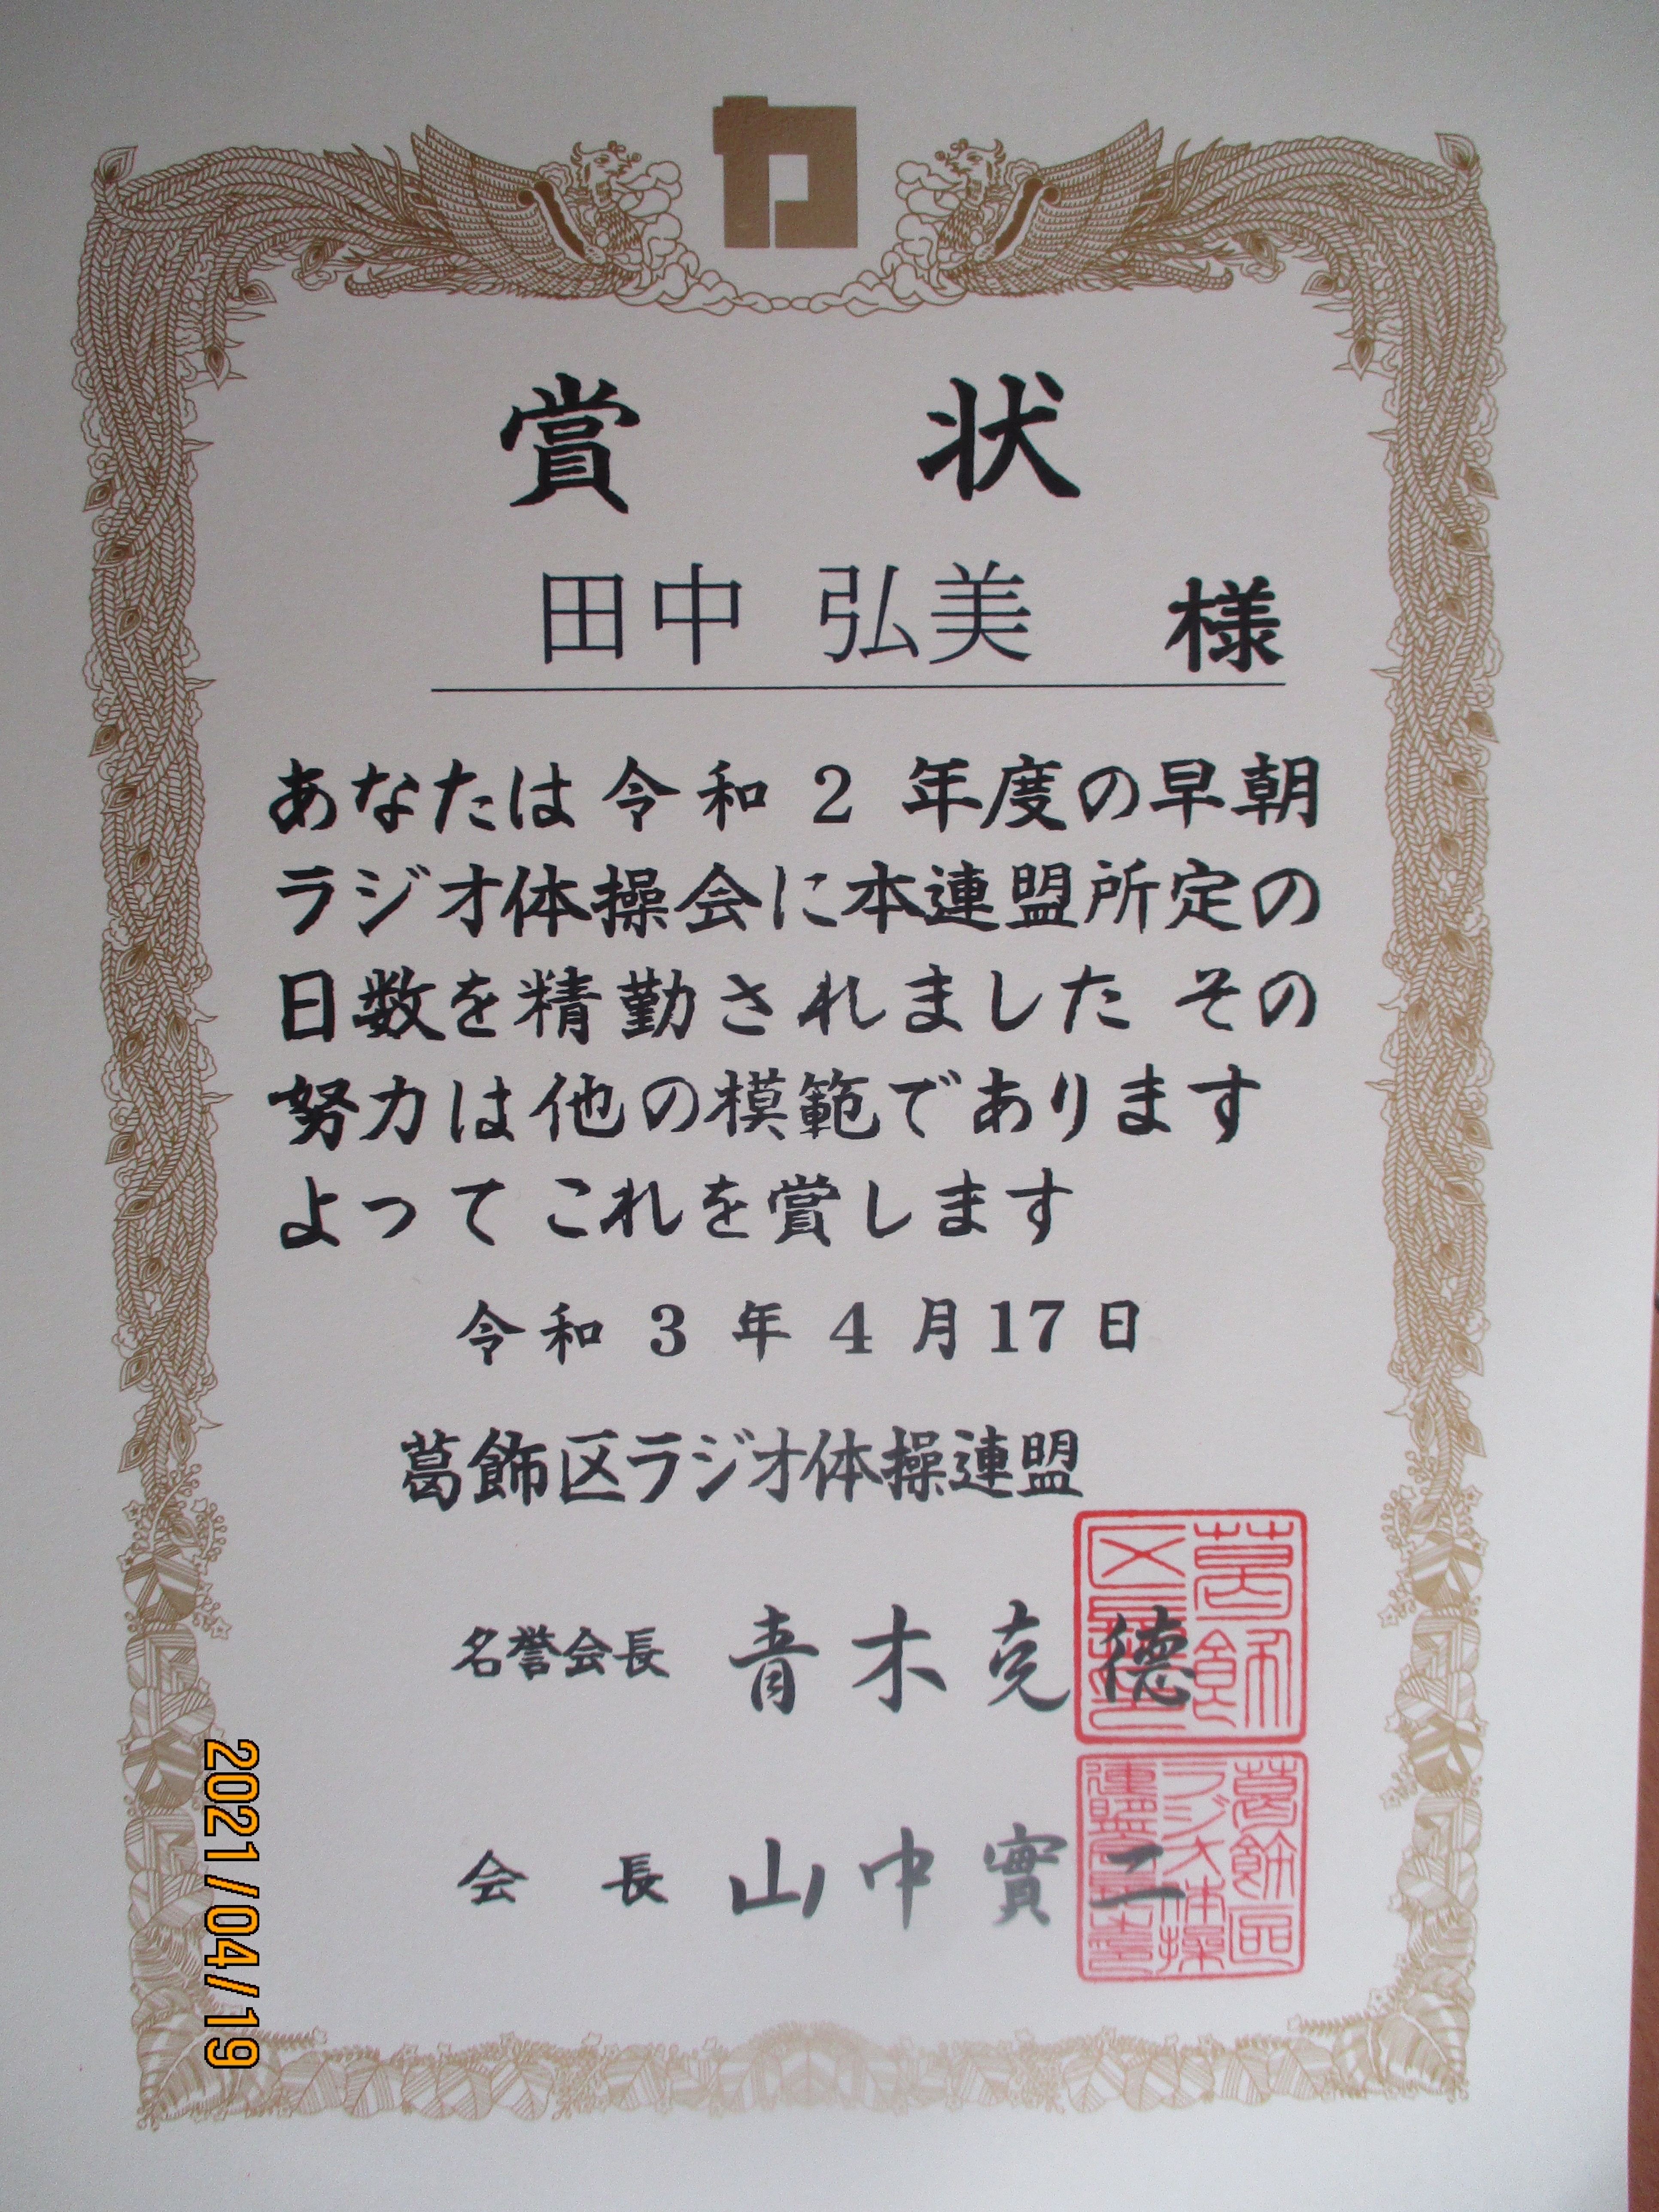 賞状
田中 弘美 様
あなたは令和2年度の早朝
ラジオ体操会に本連盟所定の
日数を精勤されました その
努力は他の模範であります
よってこれを賞します
令和3年4月17日
葛飾区ラジオ体操連盟
名誉会長 青木克德
会長 山中實二
葛飾区長印
葛飾區ラジオ体操連盟会長之印
2021/04/19